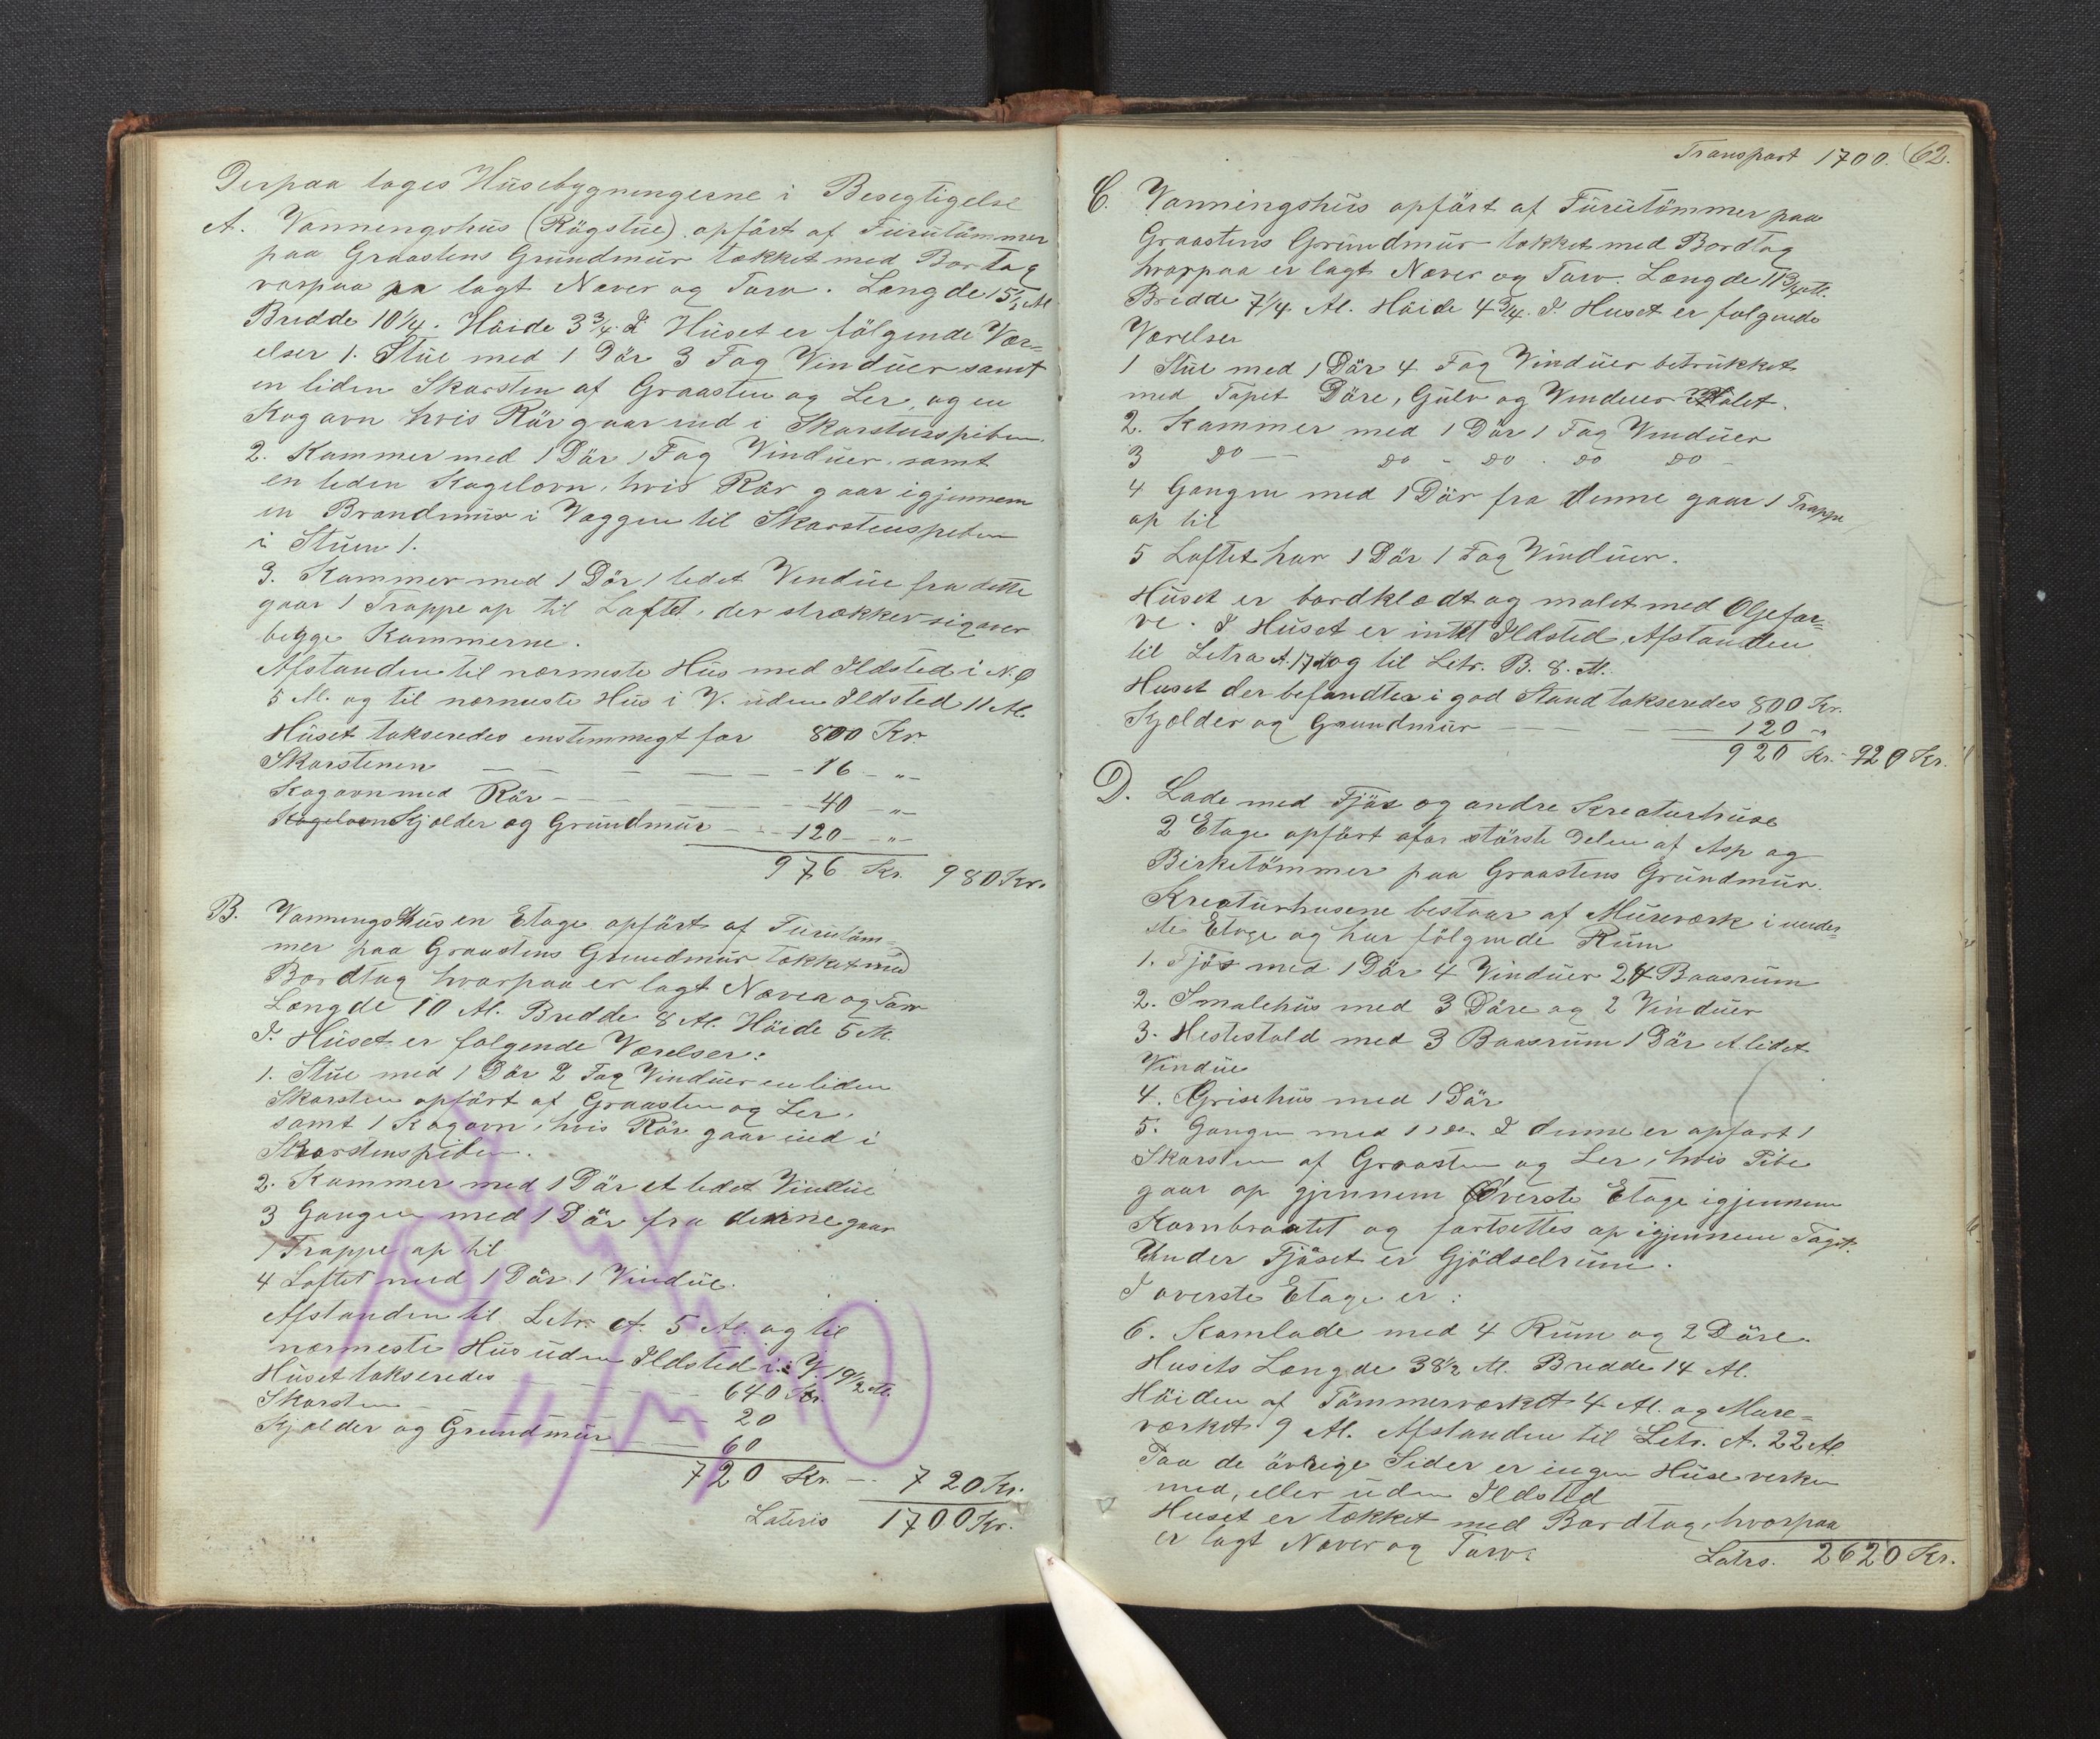 Derpaa toges Husebygningerne i Besegtigelse
A. Vanningshüs (Rögstüe) opfört af Fürütömmer
paa Graastens Gründmür tækket med Bortag
varpaa er lagt Næver og Torv. Længde 15½ Al
Bredde 10¼. Höide 3¾. I Hüset er fölgende Vær-
elser 1. Stüe med 1 Dör 3 Fag Vindüer samt
en liden Skorsten af Graasten og Ler, og en
Kogovn hvis Rör gaar ind i Skorstenspiben.
2. Kammer med 1 Dör 1 Fag Vindüer, samt
en liden Kogelovn, hvis Rör gaar igjennem
en Brandmür i Væggen til Skorstenspiben
i Stüen 1.
3. Kammer med 1 Dör 1 lidet Vindüe fra dette
gaar 1 Trappe op til Loftet, der strækker sig over
begge Kammerne.
Afstanden til nærmeste Hüs med Ildsted i N.Ø
5 Al. og til nærmeste Hüs i V. uden Ildsted 11 Al.
Hüset takseredes enstemmigt for 800 Kr.
Skorstenen — — — — — 16 — „ —
Kogovn med Rör — — — 40 — „ —
Kogelovn Kjælder og Gründmür — — 120 — „ —
976 Kr. 980 Kr.
B. Vanningshüs en Etage opfört af Fürütöm-
mer paa Graastens Grundmür tækket med
Bordtag hvorpaa er lagt Næver og Torv
Længde 10 Al. Bredde 8 Al. Höide 5 Al.
I Hüset er følgende Værelser:
1. Stüe med 1 Dör 2 Fag Vindüer en liden
Skorsten opfört af Graasten og Ler,
samt 1 Kogovn, hvis Rör gaar ind i
Skorstenspiben.
2. Kammer med 1 Dör et lidet Vindüe
3 Gangen med 1 Dör fra denne gaar
1 Trappe op til
4 Loftet med 1 Dör 1 Vindüe.
Afstanden til Letr. A. 5 Al. og til
nærmeste Hus uden Ildsted i V. 19½ Al.
Hüset takseredes — — — 640 Kr.
Skorsten — — — 20
Kjælder og Grundmür — — 60
720 Kr. — 720 Kr.
Lateris 1700 Kr.
Transport 1700. 62.
C. Vanningshüs opfört af Fürütömmer paa
Graastens Gründmür tækket med Bordtag
hvorpaa er lagt Næver og Torv. Længde 11¾ Al.
Bredde 7¼ Al. Höide 4¾. I Huset er folgende
Værelser
1 Stüe med 1 Dör 4 Fag Vindüer betrükket
med Tapet Döre, Gülv og Vinduer Malet.
2. Kammer med 1 Dör 1 Fag Vindüer
3 do — do - do . do do -
4 Gangen med 1 Dör fra denne gaar 1 Trappe
op til
5 Loftet har 1 Dör 1 Fag Vindüer.
Hüset er bordklædt og malet med Oljefar-
ve. I Huset er intet Ildsted, Afstanden
til Letra A. 17 Al og til Letr. B. 8. Al.
Huset der befandtes i god Stand takseredes 800 Kr.
Kjælder og Grundmür — — — 120 „
920 Kr. - 920 Kr.
D. Lade med Fjös og andre Kreaturhüse
2 Etage opfört for störste Delen af Asp og
Birketömmer paa Graastens Gründmür.
Kreaturhusene bestaar af Mürværk i under-
ste Etage og har fölgende Rüm
1. Fjös med 1 Dör 4 Vindüer 24 Baasrüm
2. Smalehüs med 3 Döre og 2 Vindüer
3. Hestestald med 3 Baasrüm 1 Dör et lidet
Vindüe
4. Grisehüs med 1 Dör
5. Gangen med 1 do. I denne er opfort 1
Skorsten af Graasten og Ler, hvis Pibe
gaar op gjennem Överste Etage igjennem
Kornbraatet og fortsettes op igjennem Taget.
Under Fjöset er Gjödselrüm.
I overste Etage er:
6. Kornlade med 4 Rüm og 2 Döre.
Husets Længde 38½ Al. Bredde 14 Al.
Höiden af Tömmerværket 4 Al. og Mure-
værket 9 Al. Afstanden til Letr. A. 22 Al
Paa de övrige Sider er ingen Hüse verken
med, eller üden Ildsted
Huset er tækket med Bordtag, hvorpaa
er lagt Næver og Torv.
Latrs. 2620 Kr.